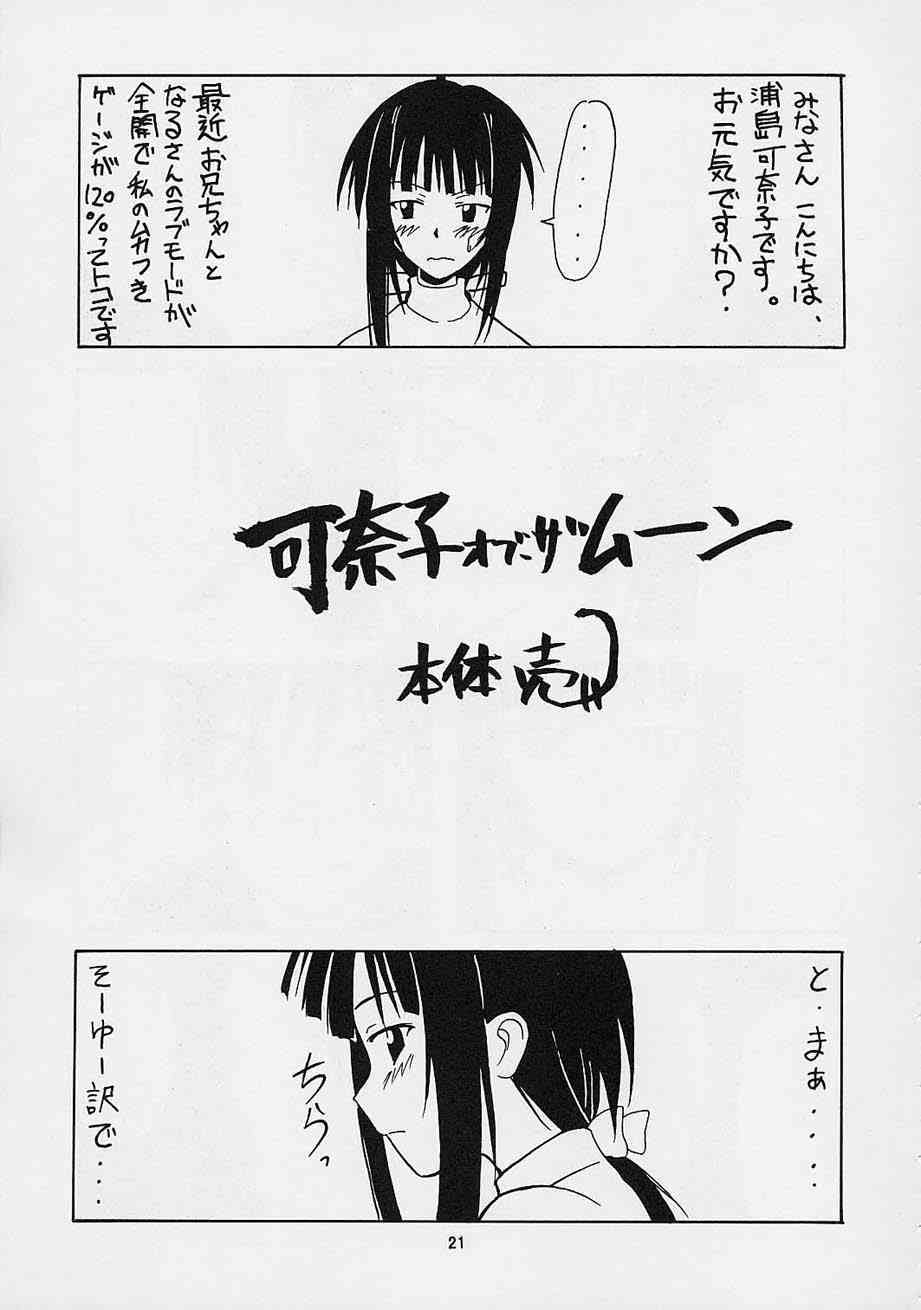 みなさん こんにちは、
浦島可奈子です。
お元気ですか?
・・・・・・
最近お兄ちゃんと
なるさんのラブモードが
全開で私のムカつき
ゲージが120%ってトコです
可奈子オブ・ザムーン
本体売
と・まぁ・・・・
ちらっ
そーゆー訳で・・・・
21